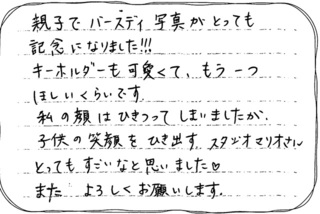 親子で バースディ 写真が とっても
記念になりました!!!
キーホルダーも 可愛くて、もう一つ
ほしいくらいです.
私の顔は ひきつって しまいましたが、
子供の笑顔を ひき出す スタジオマリオさん
とっても すごいなと思いました♡
また よろしくお願いします.